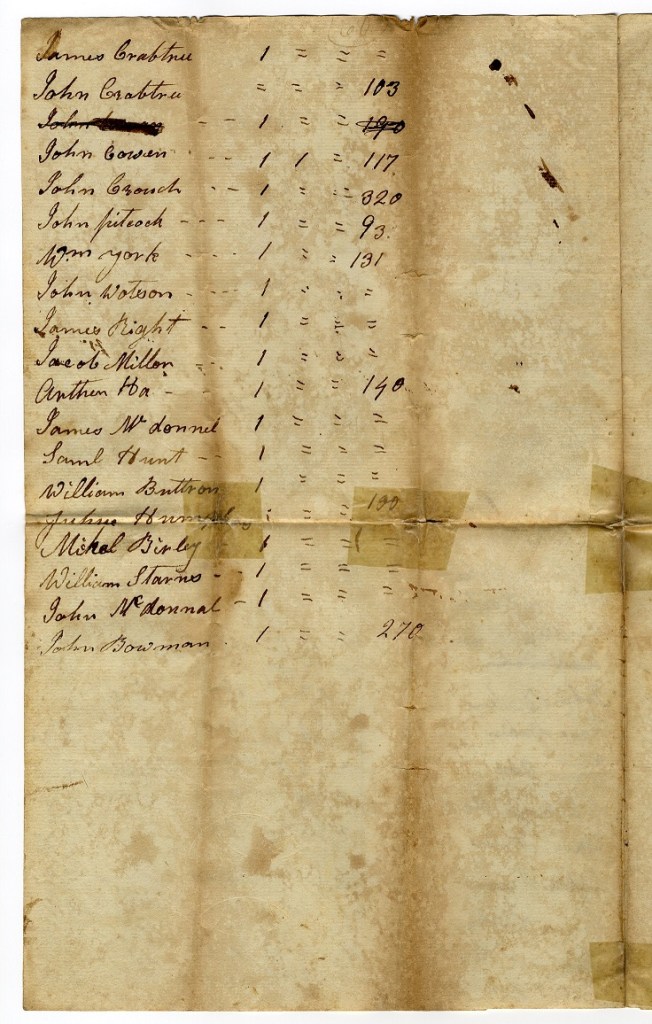 James Crabtree 1 " " "
John Crabtree " " " 103
John - - 1 " " 190
John Cowen - - 1 1 " 117
John Crouch - - 1 " " 320
John pitcock - - - 1 " " 93
Wm york - - - 1 " " 131
John Wotson - - - 1 " " "
James Right - - 1 " " "
Jacob Miller - - 1 " " "
Arther Ha - - 1 " " 140
James Mc donnel 1 " " "
Saml Hunt - - 1 " " "
William Buttron 1 " " "
1 " " 190
Mikel Birley 1 " " "
William Starns - 1 " " "
John Mc donnal - 1 " " "
John Bowman 1 " " 270